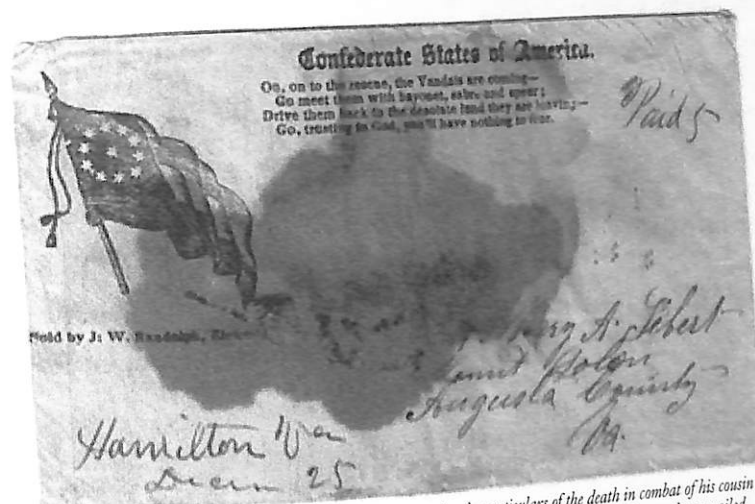 Confederate States of America.
On, on to the rescue, the Vandals are coming—
Go meet them with bayonet, sabre and spear;
Drive them back to the desolate land they are leaving;—
Go, trusting in God, you'll have nothing to fear.
Paid 5
Sold by J. W. Randolph,
A. Sebert
Augusta County
Va.
Hamilton Va
Decem 25
of the death in combat of his cousin